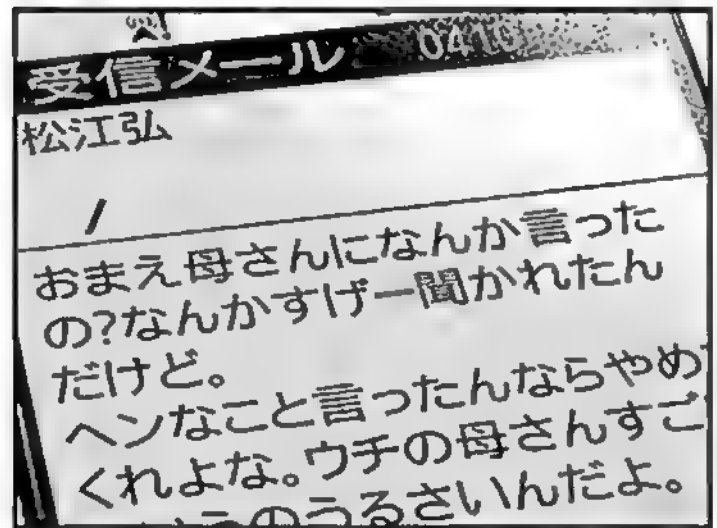 受信メール 0410
松江弘
/
おまえ母さんになんか言った
の?なんかすげー聞かれたん
だけど。
ヘンなこと言ったんならやめ
くれよな。ウチの母さんすご
うのうるさいんだよ。